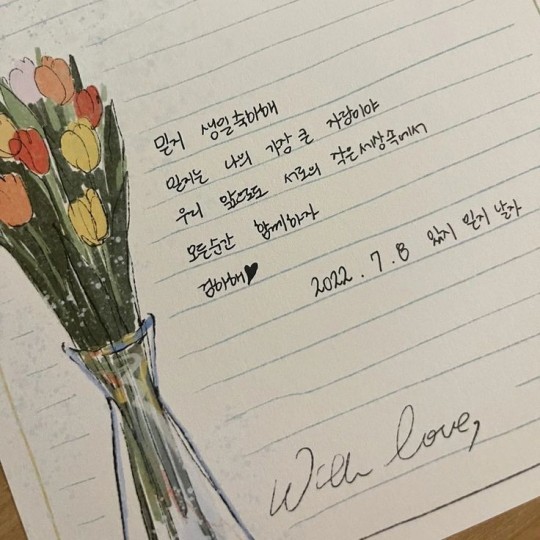 민지 생일축하해
민지는 나의 가장 큰 자랑이야
우리 앞으로도 서로의 작은세상속에서
모든순간 함께하자
검하해♥
2022 . 7 . 8 민지 날자
With love,